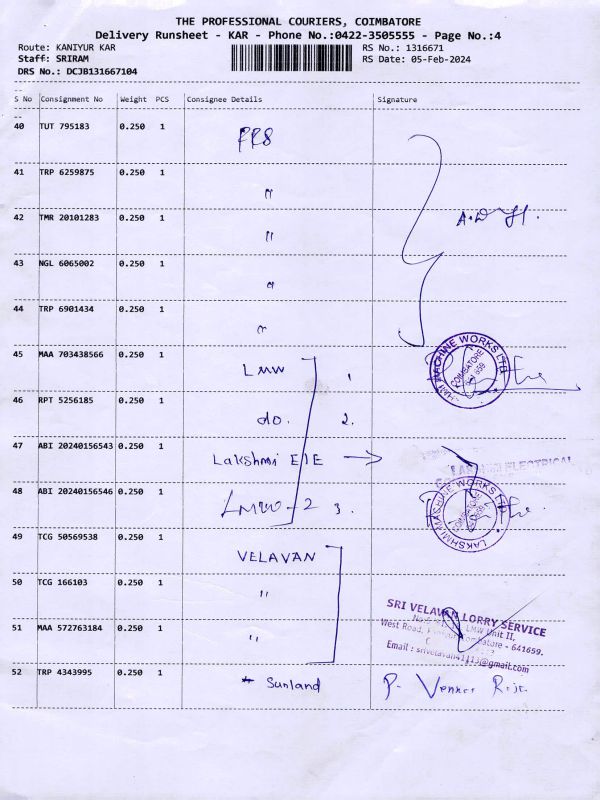 THE PROFESSIONAL COURIERS, COIMBATORE
Delivery Runsheet - KAR - Phone No.:0422-3505555 - Page No.:4
Route: KANIYUR KAR RS No.: 1316671
Staff: SRIRAM RS Date: 05-Feb-2024
DRS No.: DCJB131667104
--
S No Consignment No Weight PCS Consignee Details Signature
--
40 TUT 795183 0.250 1
41 TRP 6259875 0.250 1 "
42 TMR 20101283 0.250 1 "
43 NGL 6065002 0.250 1 "
44 TRP 6901434 0.250 1 "
45 MAA 703438566 0.250 1 LMW 1
46 RPT 5256185 0.250 1 do. 2.
47 ABI 20240156543 0.250 1 Lakshmi EIE →
LAKSHMI ELECTRICAL
48 ABI 20240156546 0.250 1 LMW-2 3.
49 TCG 50569538 0.250 1 VELAVAN
50 TCG 166103 0.250 1 "
51 MAA 572763184 0.250 1 "
SRI VELAVAN LORRY SERVICE
LMW Unit II,
West Road, Coimbatore - 641659.
Email :
52 TRP 4343995 0.250 1 * Sunland P. Venkat